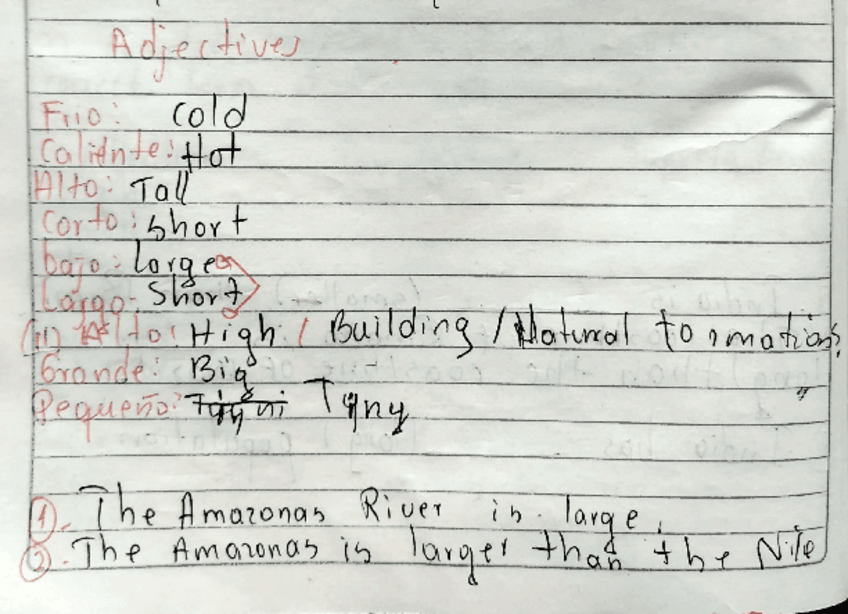 Adjectives
Frio: cold
Caliente: Hot
Alto: Tall
Corto: short
bajo: Large
Largo: Short
(11) Alto: High / Building / Natural formations
Grande: Big
Pequeño: Tyny
1. The Amazonas River is large.
2. The Amazonas is larger than the Nile